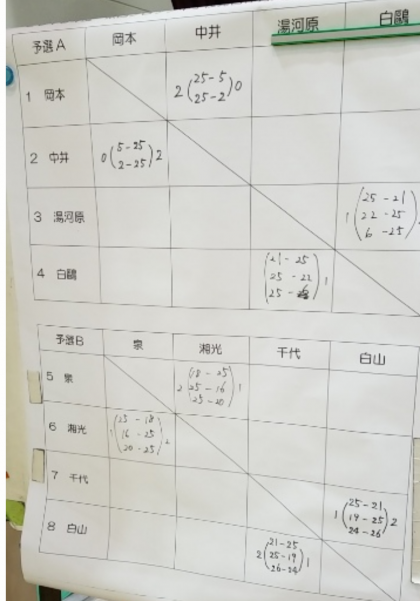 予選A 岡本 中井 湯河原 白鷗
1 岡本 2(25-5 25-2)0
2 中井 0(5-25 2-25)2
3 湯河原 1(25-21 22-25 6-25)
4 白鷗 (21-25 25-22 25-6)1
予選B 泉 湘光 千代 白山
5 泉 2(18-25 25-16 25-20)1
6 湘光 1(25-18 16-25 20-25)2
7 千代 1(25-21 19-25 24-26)2
8 白山 2(21-25 25-19 26-24)1